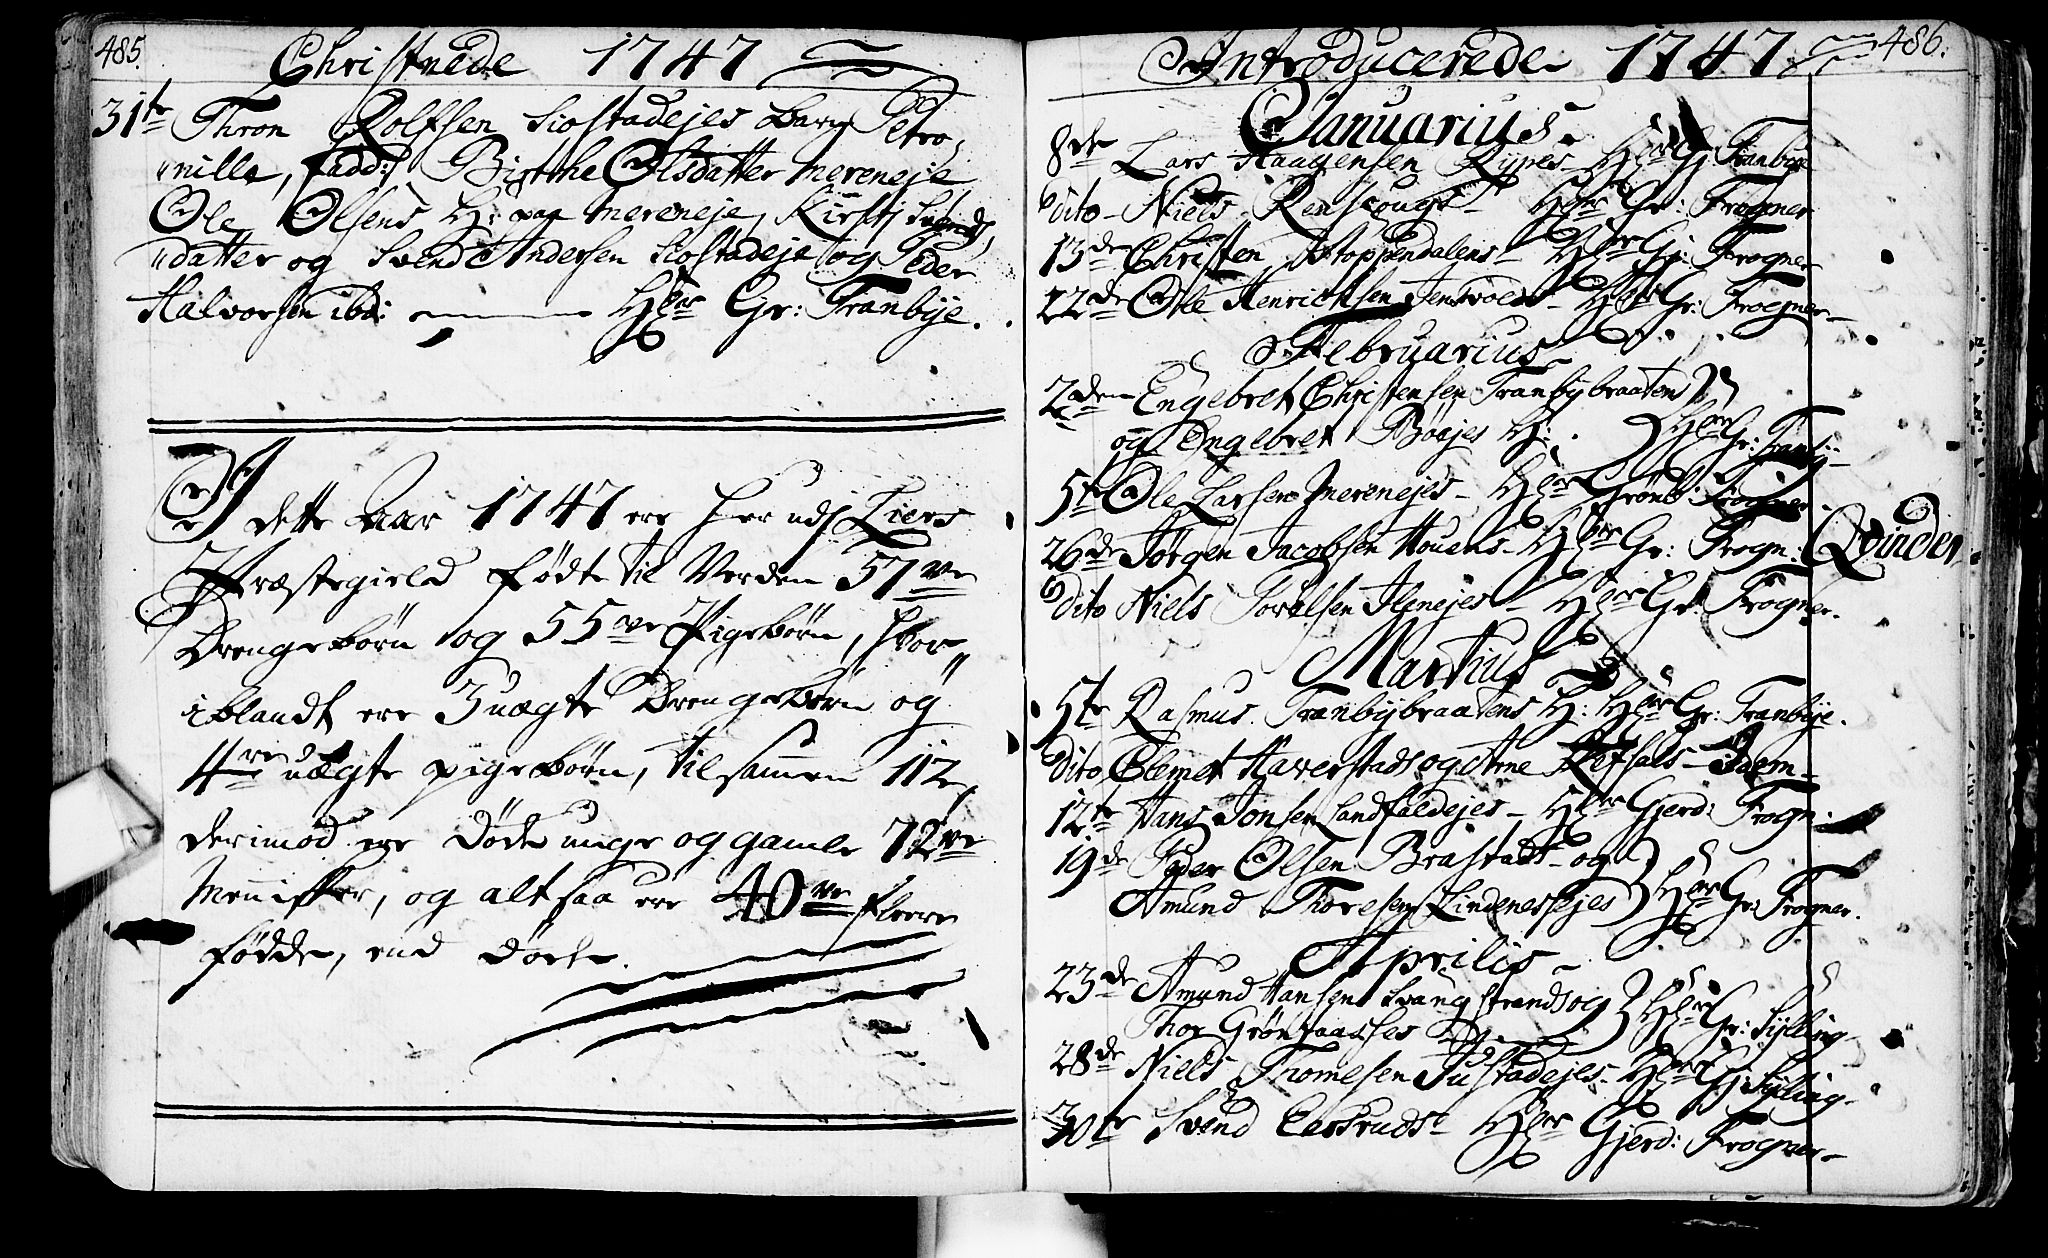 485.
Christnede 1747
31te Thron Rolfsen Siostadejes Barn Petro,
"nille, fadd: Birthe Olsdatter Mereneje
Ole Olsens H: paa Mereneje, Kirsti Svends,
"datter og Svend Andersen Siostadeje og Peder
Halvorsen ibd: Hr Gr: Tranbye.
I dette Aar 1747 ere her udj Liers
Præstegield fødte til Verden 57ve
Drengebørn og 55ve Pigebørn, hvor"
iblandt ere 3 uægte Drengebørn og
4re uægte pigebørn, tilsamen 112,
derimod ere Døde unge og gamle 72ve
Menisker, og altsaa ere 40ve flere
fødde, end døde.
486.
Introducerede 1747
Januarius
8de Lars Haagensen Rypes - Hr Gr: Tranbye
dito - Niels Renskougs - Hr Gr: Frogner
13de Christen Stoppendalens - Hr Gr: Frogner
22de Ole Henrichsen Jensvolds - Hr Gr: Frogner -
Februarius
2den Engebret Christensen Tranbybraaten
og Engebret Bøejes H: Hr Gr: Tranby -
5te Ole Larsen Merenejes - Hr Grønb: Frogner.
26de Jørgen Jacobsen Houens - Hr Gr: Frogn: Qvinder
dito Niels Iversen - Hr Gr: Frogner.
Martius
5te Rasmus Tranbybraatens H: Hr Gr: Tranbye.
dito Clemet Haverstads og Arne Refsals - Idem -
12te Hans Jonsen Landfaldejes - Hr Gjerd: Frogn:
19de Peder Olsen Brastads - og
Amund Thoresen Lindenessejes Hr Gr: Frogner.
Aprilis
23de Amund Hansen Svangstrands og
Thor Grønsaasses Hr Gr: Sylling -
28de Niels Thomesen Justadejes - Hr Gr: Sylling -
30te Svend Eeskruds - Hr Gjerd: Frogner -